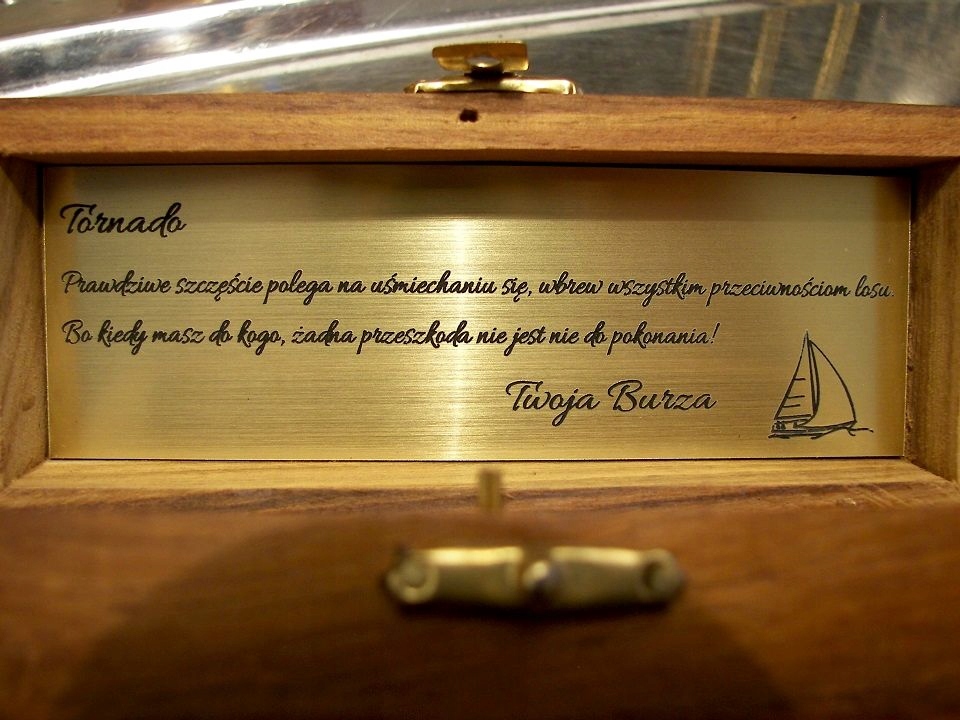 Tornado
Prawdziwe szczęście polega na uśmiechaniu się, wbrew wszystkim przeciwnościom losu.
Bo kiedy masz do kogo, żadna przeszkoda nie jest nie do pokonania!
Twoja Burza